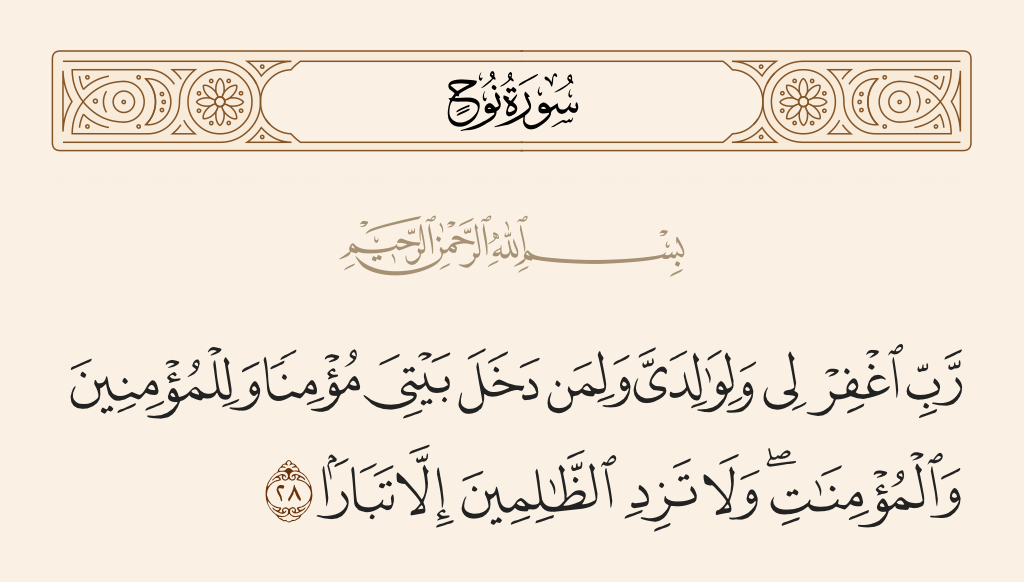 سُورَةُ نُوحٍ
بِسْمِ ٱللَّهِ ٱلرَّحْمَٰنِ ٱلرَّحِيمِ
رَّبِّ ٱغْفِرْ لِى وَلِوَٰلِدَىَّ وَلِمَن دَخَلَ بَيْتِىَ مُؤْمِنًا وَلِلْمُؤْمِنِينَ
وَٱلْمُؤْمِنَـٰتِۖ وَلَا تَزِدِ ٱلظَّـٰلِمِينَ إِلَّا تَبَارًۢا ٢٨